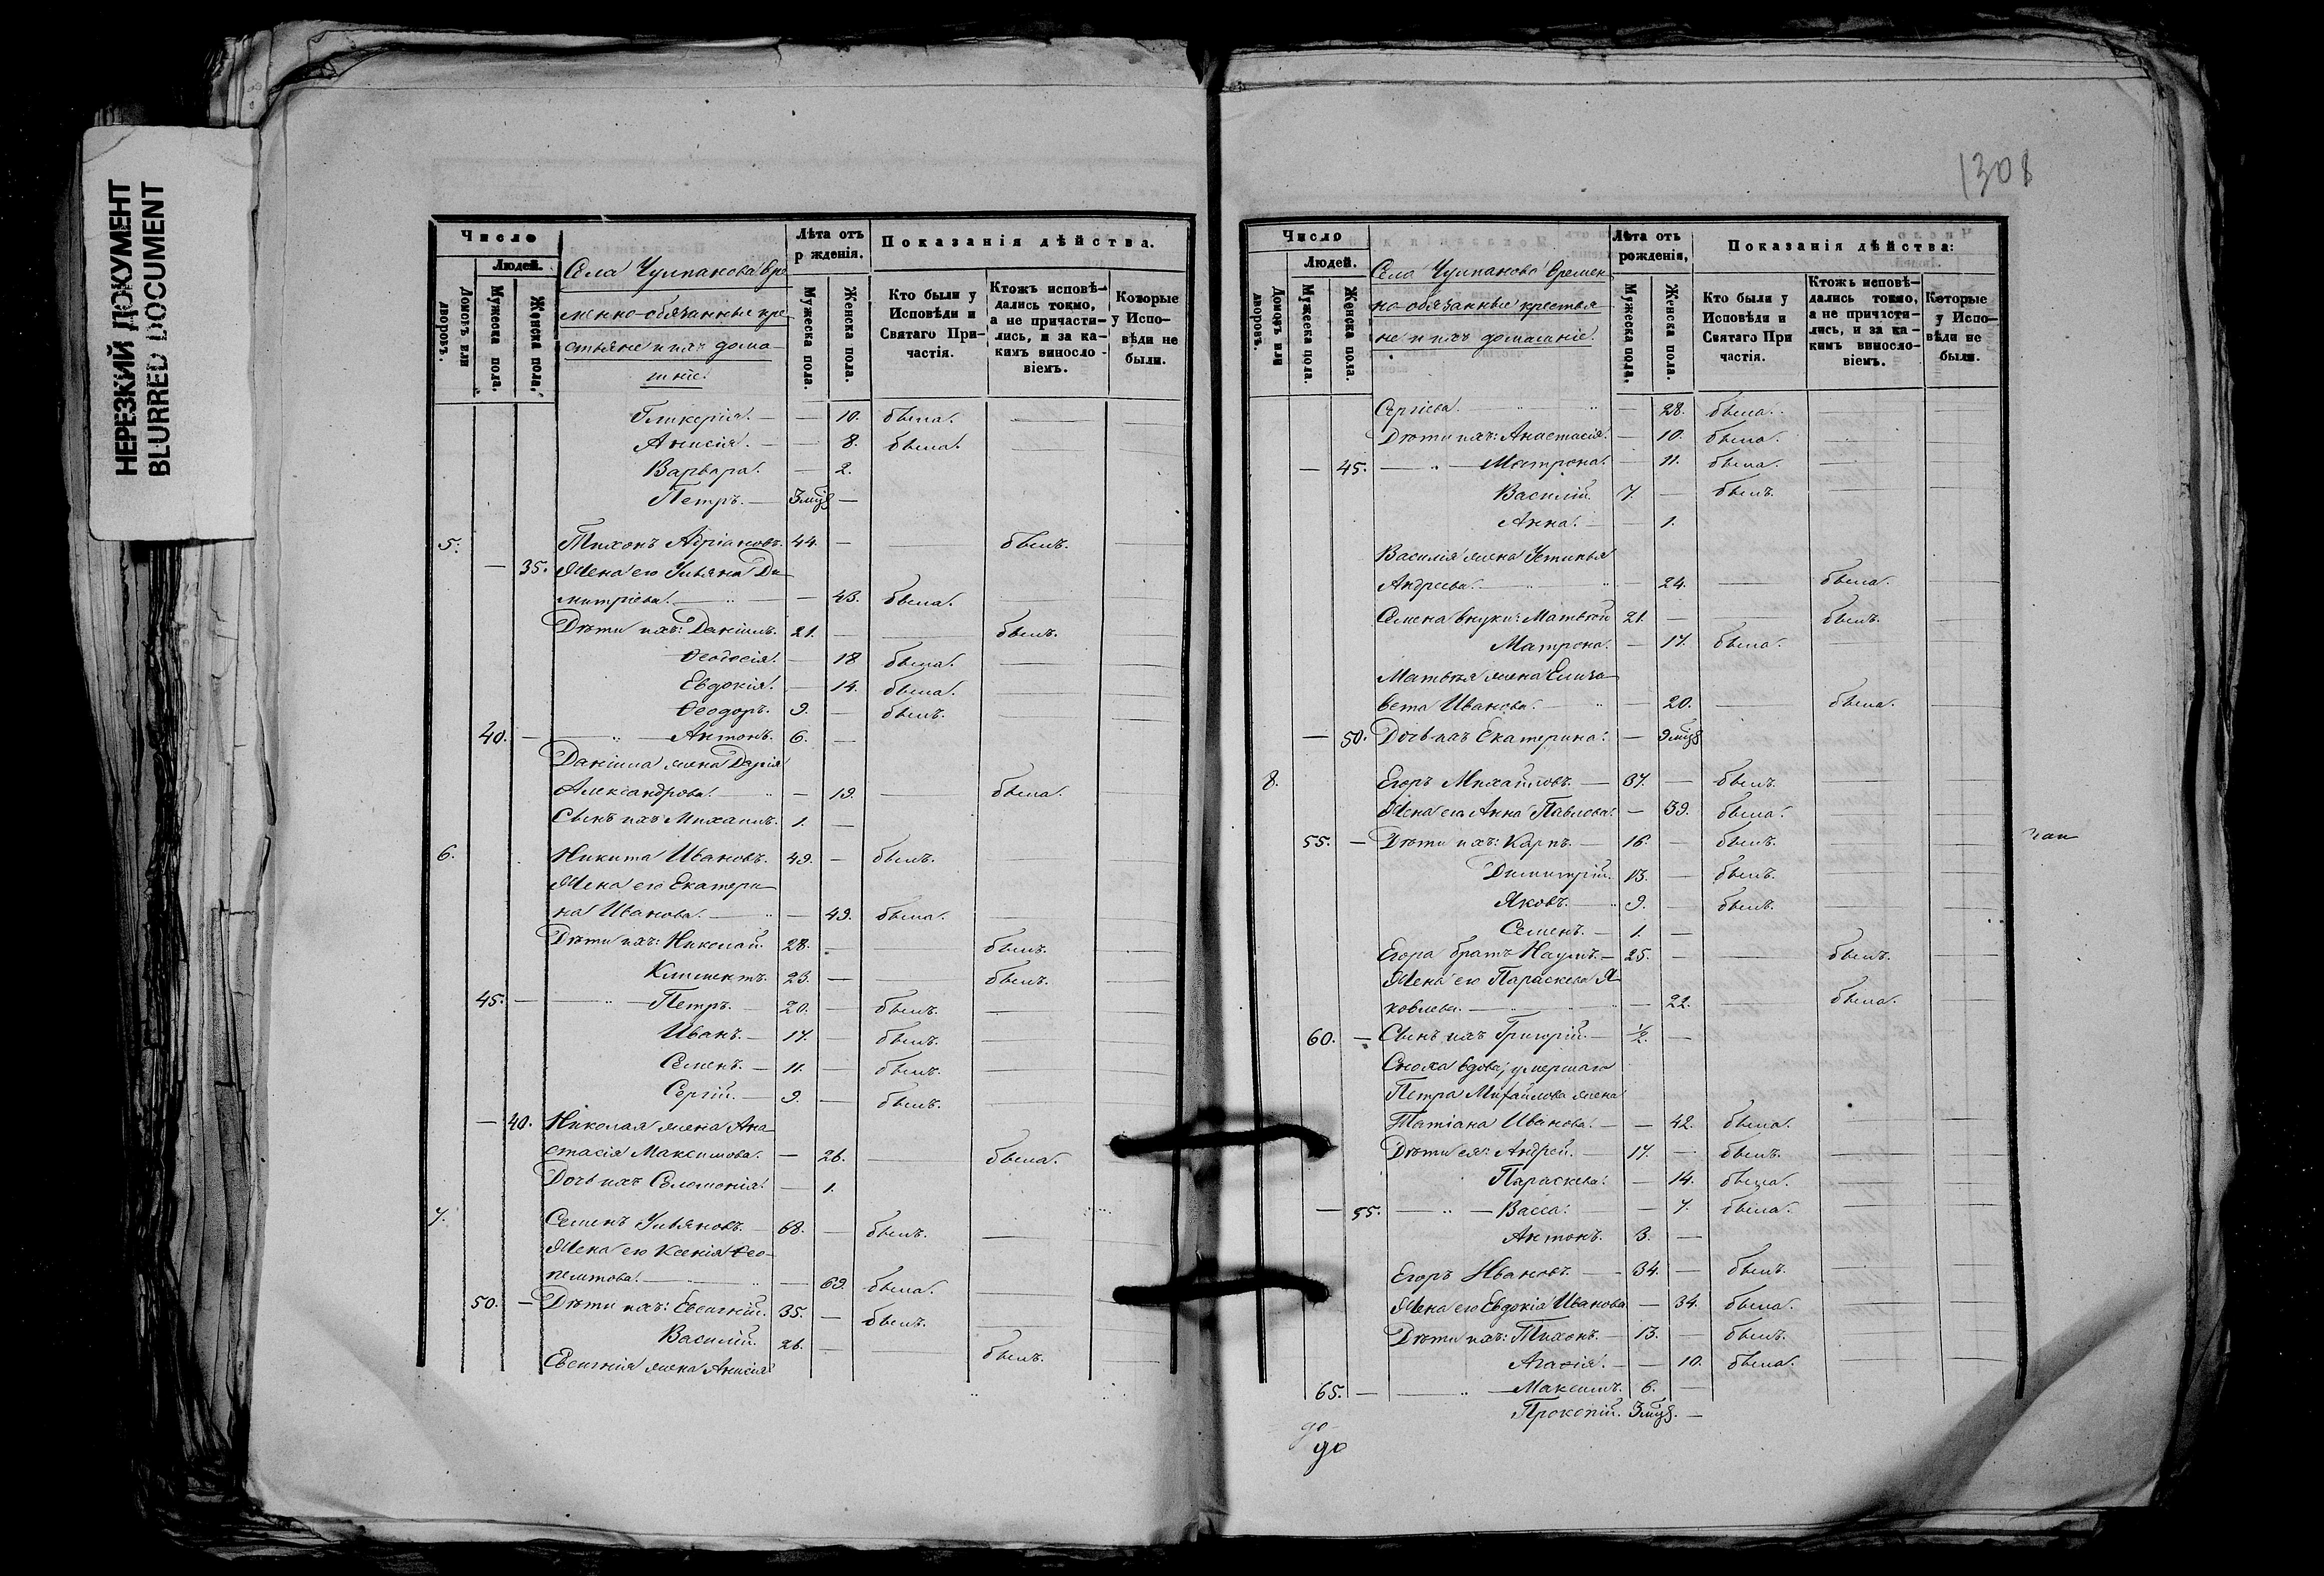 НЕРЕЗКИЙ ДОКУМЕНТ
BLURRED DOCUMENT
Число
Людей.
Домовъ или дворовъ.
Мужеска пола.
Женска пола.
Села Чулпанова вре
менно-обязанные кре
стьяне и ихъ дома
шніе.
Лѣта отъ р жденія.
Мужеска пола.
Женска пола.
Показанія дѣйства.
Кто были у Исповѣди и Святаго Причастія.
Ктожъ исповѣдались токмо, а не причастились, и за какимъ винословіемъ.
Которые у Исповѣди не были.
Гликерія. — — 10. была. —
Анисія. — — 8. была. —
Варвара. — 2.
Петръ. — 3 мцъ —
5. Тихонъ Адріановъ. 44. — — былъ. —
— 35. Жена его Ульяна Ди
митріева. — — 43. была. —
Дѣти ихъ: Даніилъ. 21. — — былъ. —
Ѳеодосія. — 18 была. —
Евдокія. — 14. была. —
Ѳеодоръ. 9. — былъ. —
40. — — „ — Антонъ. 6. —
Даніила жена Дарія
Александрова. — — 19. — была. —
Сынъ ихъ Михаилъ. 1. —
6. Никита Ивановъ. 49. — былъ. —
Жена его Екатери
на Иванова. — — 49. была. —
Дѣти ихъ: Николай. 28. — — былъ. —
Климентъ. 23. — — былъ. —
45. — — „ — Петръ. — 20. — былъ. —
Иванъ. — 17. — былъ. —
Семенъ. — 11. — былъ. —
Сергій. — 9. — былъ. —
— 40. Николая жена Ана
стасія Максимова. — 26. — была. —
Дочь ихъ Соломонія. — 1.
7. Семенъ Ульяновъ. 68. — былъ. —
Жена его Ксенія Ѳео
пемтова. — — 69. была. —
50. — Дѣти ихъ: Евсигній. 35. — былъ. —
Василій. 26. — — былъ. —
Евсигнія жена Анисія
1308
Число
Людей.
Домовъ или дворовъ.
Мужеска пола.
Женска пола.
Села Чулпанова времен
но-обязанные крестья
не и ихъ домашніе.
Лѣта отъ рожденія,
Мужеска пола,
Женска пола.
Показанія дѣйства:
Кто были у Исповѣди и Святаго При частія.
Ктожъ исповѣдались токмо, а не причастились, и за какимъ винословіемъ.
Которые у Исповѣди не были.
Сергіева. — — 28. была. —
Дѣти ихъ: Анастасія. — 10. была. —
— 45. — „ — Матрона. — 11. была. —
Василій. 7. — былъ. —
Анна. — — 1.
Василія жена Устинья
Андреева. — — 24. — была. —
Семена внуки: Матвей 21. — — былъ. —
Матрона. — 17. была. —
Матвѣя жена Елиза
вета Иванова. — — 20. — была. —
— 50. Дочь ихъ Екатерина. — 9 мцъ
8. Егоръ Михайловъ. — 37. — былъ. —
Жена его Анна Павлова. — 39. была. —
55. — Дѣти ихъ: Карпъ. — 16. — былъ. —
Димитрій. 13. — былъ. —
Яковъ. — 9. — былъ. —
Семенъ. — 1. —
Егора братъ Наумъ. — 25. — — былъ. —
Жена его Параскева Я
ковлева. — — 22. — была. —
60. — Сынъ ихъ Григорій. — ½. —
Сноха вдова, умершаго
Петра Михайлова жена
Татіана Иванова. — — 42. была. —
Дѣти ея: Андрей. — 17. — былъ. —
Параскева. — 14. была. —
— 55. — „ — Васса. — 7. была. —
Антонъ. 3. —
Егоръ Ивановъ. — 34. — былъ. —
Жена его Евдокія Иванова — 34. была. —
Дѣти ихъ: Тихонъ. — 13. — былъ. —
Агафія. — — 10. была. —
65. — — „ — Максимъ. 6. —
Прокопій. 3 мцъ. —
до
до